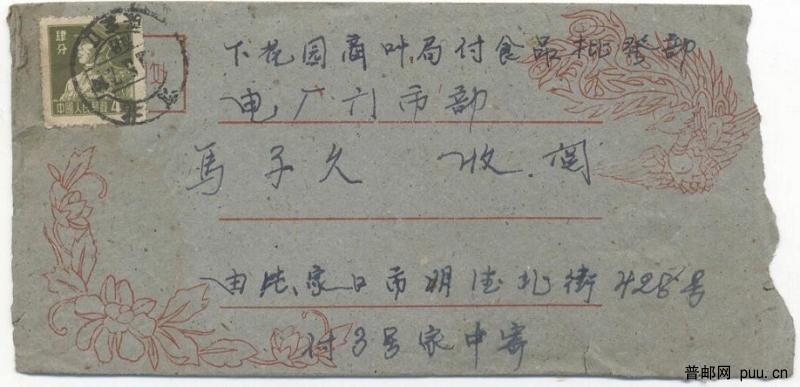 下花园商叶局付食品批發部
电厂门市部
馬子久 收.啓
由张家口市明德北街428号
付3号家中寄
肆分
中国人民邮政 4
普邮网 puu.cn